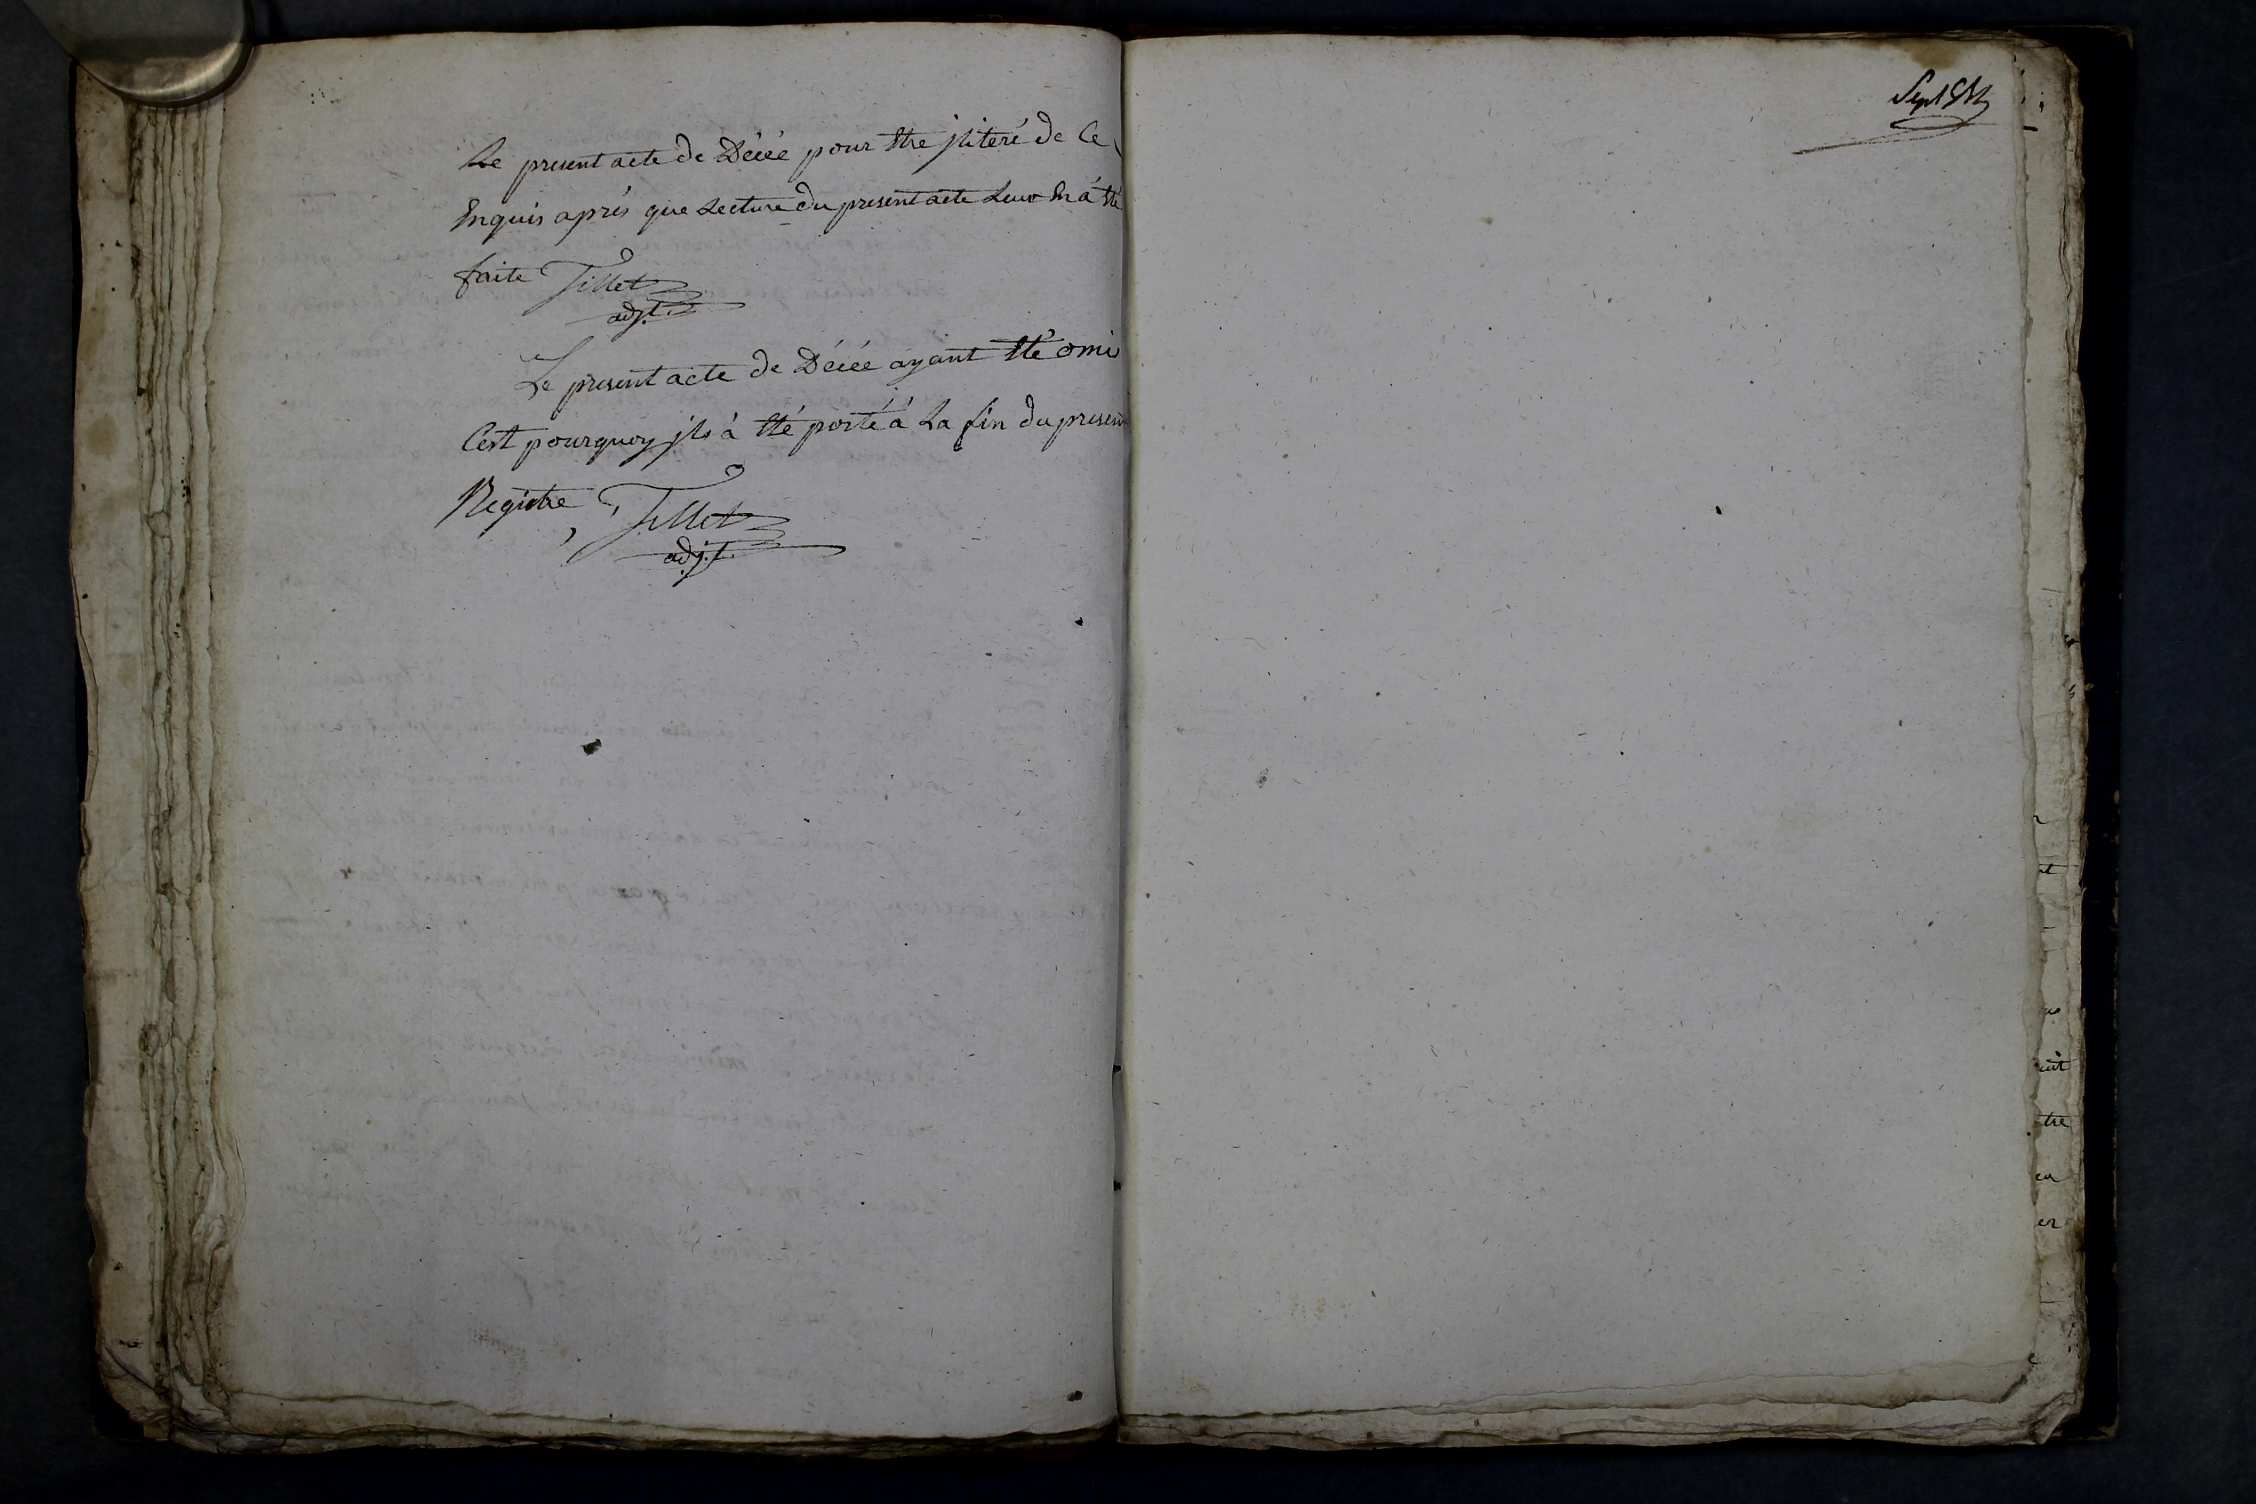 Le present acte de Décée pour Etre jnteré de Ce
Enquis aprés que Lecture du present acte Leur En á Eté
faite Tillet
adjt.
Le present acte de Décée ayant Eté omis
C'est pourquoy jls á Eté porté á La fin du present
Registre, Tillet
adjt.
Sept